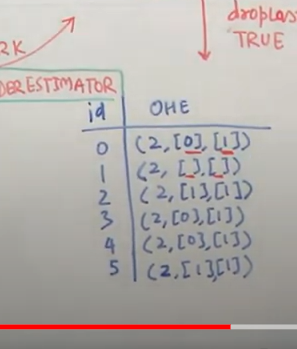 droplas
TRUE
2K
DERESTIMATOR
id OHE
0 (2,[0],[1])
1 (2,[],[])
2 (2,[1],[1])
3 (2,[0],[1])
4 (2,[0],[1])
5 (2,[1],[1])